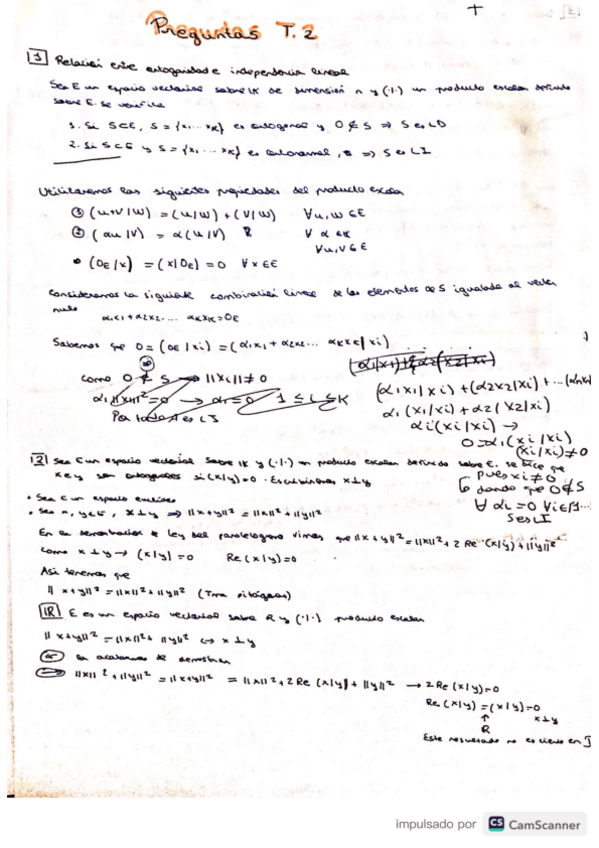 Preguntas T.2
1 Relación entre ortogonalidad e independencia lineal
Sea E un espacio vectorial sobre IK de dimensión n y (·|·) un producto escalar definido
sobre E. Se verifica
1. Si S⊂E, S = {x₁ ... xₖ} es ortogonal y 0 ∉ S ⇒ S es LD
2. Si S⊂E y S = {x₁ ... xₖ} es ortonormal, ⇒ S es LI
Utilizaremos las siguientes propiedades del producto escalar
① (u+v|w) = (u|w) + (v|w) ∀u,w∈E
② (αu|v) = α(u|v) ∀ α ∈ K
∀u,v∈E
• (0E|x) = (x|0E) = 0 ∀x∈E
Consideramos la siguiente combinación lineal de los elementos de S igualada al vector
nulo
α₁x₁+α₂x₂... αₖxₖ=0E
Sabemos que 0 = (0E|xi) = (α₁x₁ + α₂x₂... αₖxₖ|xi)
como 0 ∉ S ⇒ ||xi|| ≠ 0
αi||xi||²=0 → αi=0 1 ≤ i ≤ K
Por tanto S es LI
(α₁x₁|xi) + (α₂x₂|xi) + ...
α₁(x₁|xi) + α₂(x₂|xi)
αi(xi|xi) →
0=αi(xi|xi)
(xi|xi)≠0
pues xi≠0
dando que 0∉S
∀ αi=0 ∀i∈{1...
S es LI
2 Sea E un espacio vectorial sobre IK y (·|·) un producto escalar definido sobre E. se dice que
x e y son ortogonales si (x|y)=0. Escribiremos x⊥y
• Sea E un espacio euclídeo
• Sea x, y∈E, x⊥y ⇒ ||x+y||² = ||x||²+||y||²
En la demostración de ley del paralelogramo vimos que ||x+y||² = ||x||²+2 Re (x|y)+||y||²
como x⊥y → (x|y)=0 Re(x|y)=0
Así tenemos que
||x+y||² = ||x||²+||y||² (Tma pitágoras)
IR E es un espacio vectorial sobre R y (·|·) producto escalar
||x+y||² = ||x||²+||y||² ⇔ x⊥y
⇐ la acabamos de demostrar
⇒ ||x||²+||y||² = ||x+y||² = ||x||²+2 Re(x|y)+||y||² → 2 Re(x|y)=0
Re(x|y) = (x|y)=0
↑ x⊥y
R
Este resultado no es cierto en
impulsado por CS CamScanner